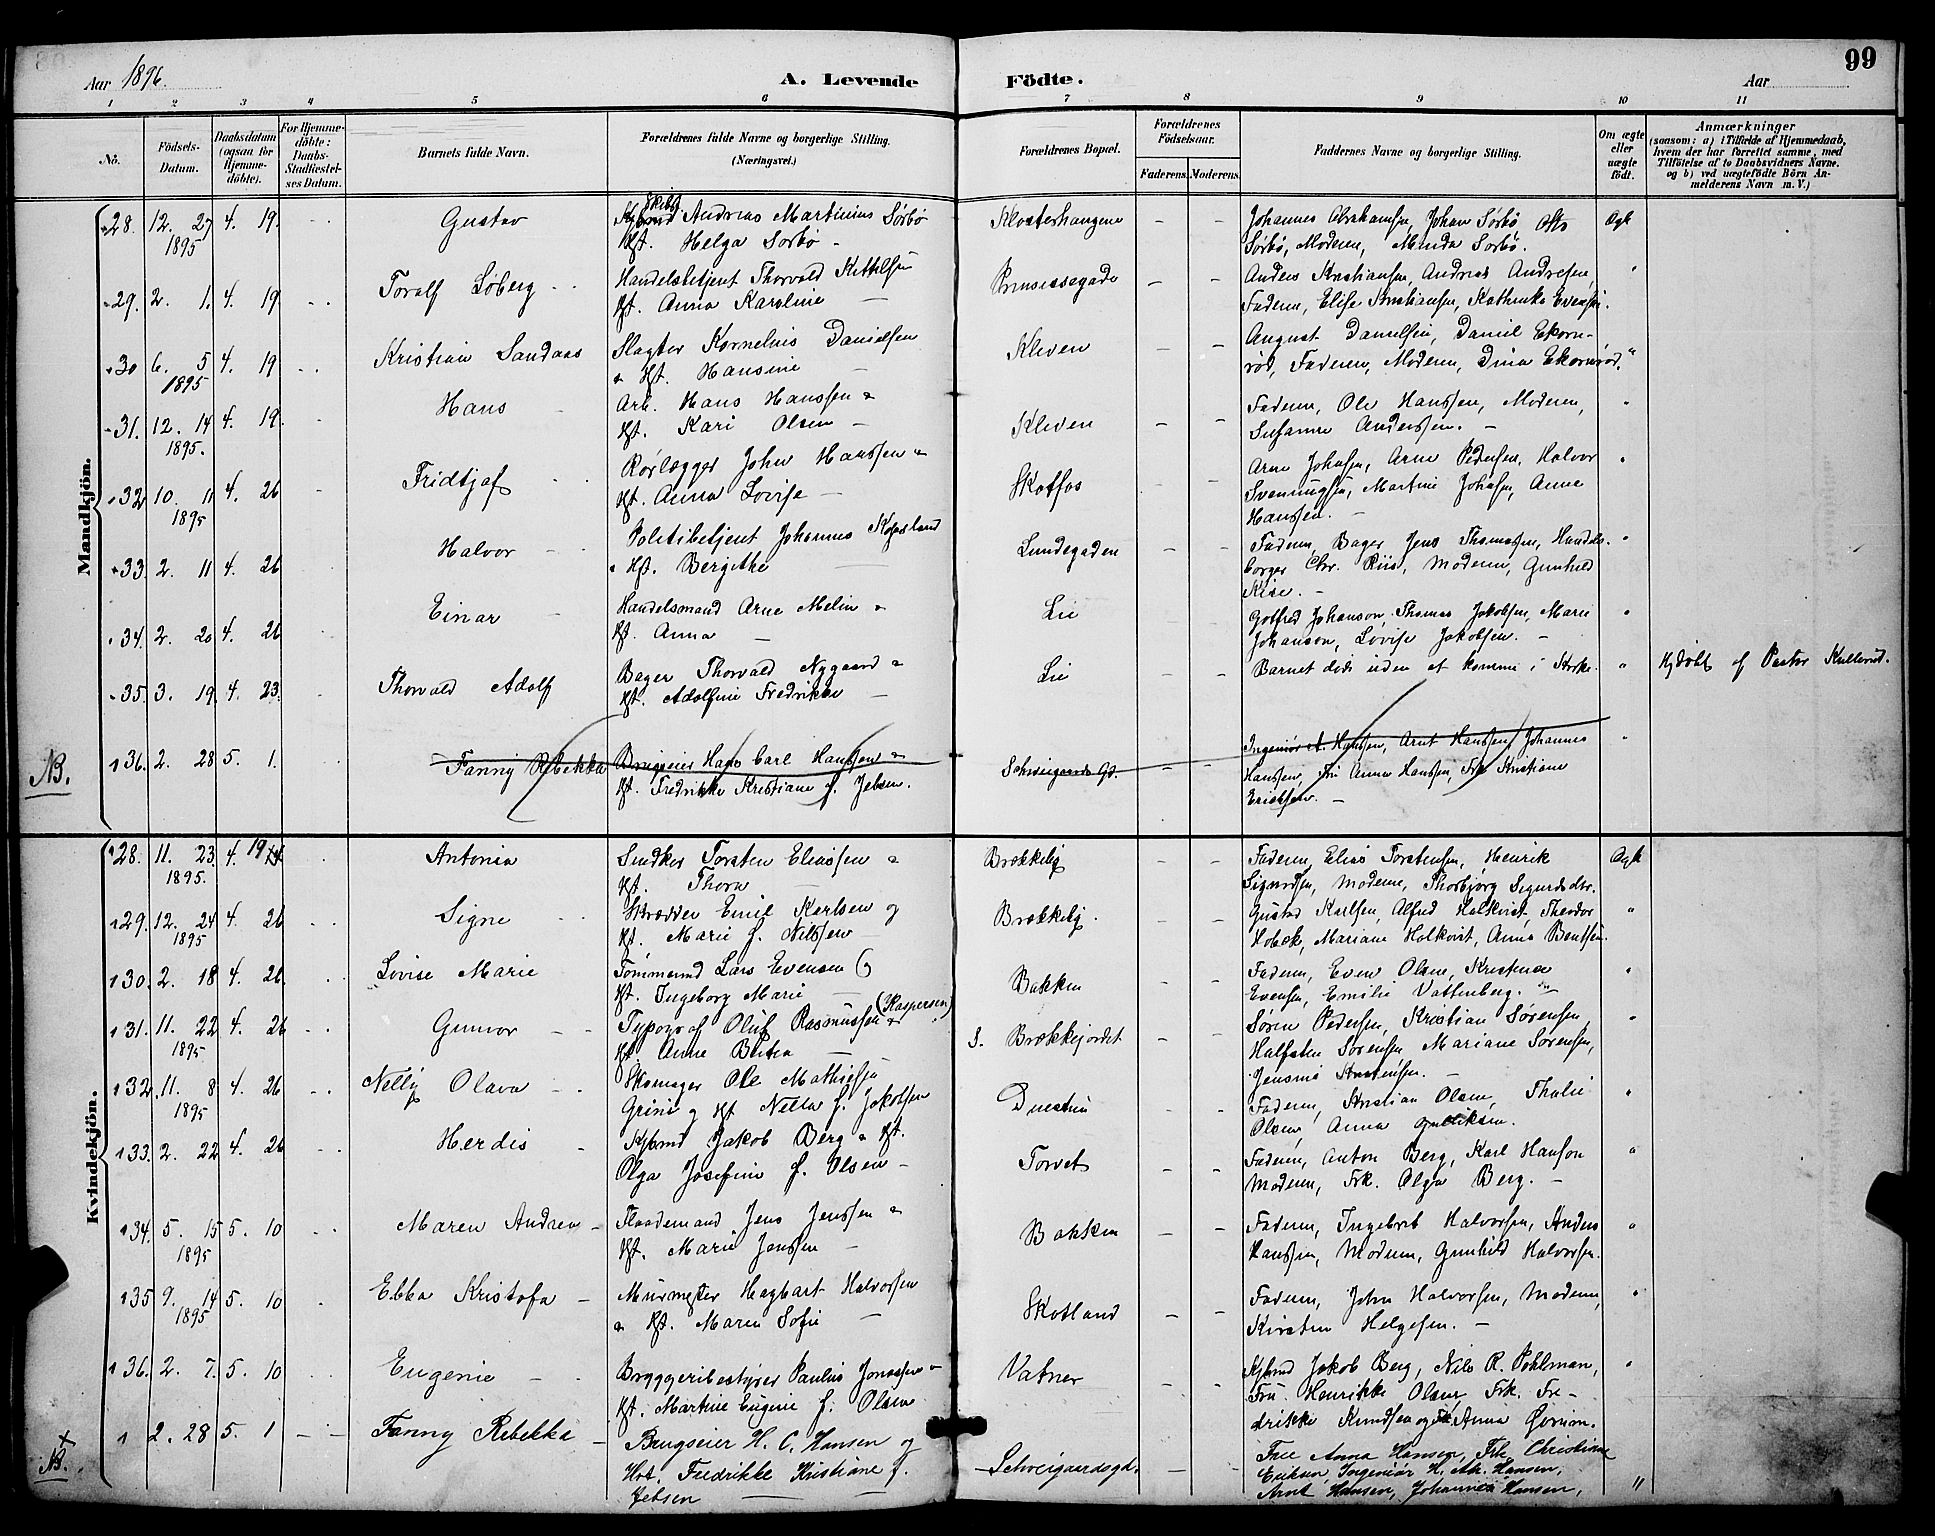 99
Aar 1896.
A. Levende Födte.
Aar
1 2 3 4 5 6 7 8 9 10 11
No.
Födsels-Datum.
Daabsdatum (ogsaa for Hjemme-döbte).
For Hjemme-döbte: Daabs-Stadfæstel-ses Datum.
Barnets fulde Navn.
Forældrenes fulde Navne og borgerlige Stilling. (Næringsvei.)
Forældrenes Bopæl.
Forældrenes Födselsaar.
Faderens. Moderens.
Faddernes Navne og borgerlige Stilling.
Om ægte eller uægte födt.
Anmærkninger
(saasom: a) i Tilfælde af Hjemmedaab, hvem der har forrettet samme, med Tilföielse af to Daabsvidners Navne. og b) ved uægtefödte Börn Anmelderens Navn m. V.)
Mandkjön.
28. 12. 27 1895 4. 19. Gustav
Andreas Martinius Sörbö
Hft. Helga Sörbö
Klosterhaugene
Johannes Abrahamsen, Johan Sörbö, Otto
Sörbö, Moderen, Minda Sörbö.
Ægte
29. 2. 1. 4. 19 Toralf Söberg
Handelsbetjent Thorvald Kittilsen
Hft. Anna Karoline
Prinsessegade
Anders Kristiansen, Andreas Andresen,
Faderen, Elise Kristiansen, Kathinka Evensen.
30 6. 5 1895 4. 19 Kristian Sandaas
Slagter Kornelius Danielsen
Hft. Hansine
Kleven
August Danielsen, Daniel Ekorn-
röd, Faderen, Moderen, Dina Ekornröd.
31. 12. 14 1895. 4. 19. Hans
Arb. Hans Hanssen
Hft. Kari Olsen
Kleven
Faderen, Ole Hanssen, Moderen,
Susanne Anderssen.
32 10. 11 1895 4. 26 Fridtjof
Rörlægger John Hanssen
Hft. Anna Lovise
Skotfos
Arne Johnsen, Arne Pedersen, Halvor
Svenningsen, Martine Johnsen, Anne
Hanssen.
33. 2. 11 4. 26 Halvor
Politibetjent Johannes
Hft. Bergithe
Lundegaden
Faderen, Bager Jens Thomassen, Handels-
borger Chr. Riis, Moderen, Gunhild
Riise.
34. 2. 20 4. 26 Einar
Handelsmand Arne Melin
Hft. Anna
Lie
Gotfred Johanson, Thomas Jakobsen, Marie
Johanson, Lovise Jakobsen.
35. 3. 19. 4. 23. Thorvald Adolf
Bager Thorvald Nygaard
Hft. Adolfine Fredrikke
Lie
Barnet döde uden at komme i Kirke.
Hjdöbt af Pastor Kullerud.
NB.
36. 2. 28 5. 1. Fanny Rebekka
Brugseier Hans Carl Hanssen
Hft. Fredrikke Kristiane f. Jebsen.
Schweigaards Gd.
Ingeniör A. Hanssen, Arnt Hanssen, Johannes
Hanssen, Fru Anna Hanssen, Frk Kristiane
Ericksen.
Kvindekjön.
28. 11. 23. 1895. 4. 19 Antonia
Smedker Torsten Eliassen
Hft. Thora
Brækkeby
Faderen, Elias Torstensen, Henrik
Sigurdsen, Moderen, Thorbjörg Sigurdsdtr.
Ægte
29. 12. 24 1895 4. 26 Signe
Skrædder Emil Karlsen og
Hft. Marie f. Nilssen
Brækkeby.
Gustav Karlsen, Alfred Holkvist, Theodor
Hobæk, Mariane Holkvist, Anna Bentsen.
30. 2. 18 4. 26. Lovise Marie
Tömmermd Lars Evensen
Hft. Ingeborg Marie
Bakken
Faderen, Even Olsen, Kristine
Evensen, Emilie Vattenberg.
31. 11. 22 1895 4. 26 Gunvor
Typograf Oluf Rasmussen (Kaspersen)
Hft. Anne Betea
S. Brækkejordet
Sören Pedersen, Kristian Sörensen,
Halfsten Sörensen, Mariane Sörensen,
Jensine Kristensen.
32. 11. 8 1895 4. 26 Nelly Olava
Skomager Ole Mathisen
Grini og Hft Nella f. Jakobsen
Duestien
Faderen, Kristian Olsen, Thalie
Olsen, Anna Gulliksen.
33. 2. 22 4. 26 Herdis
Kjbmd Jakob Berg Hft.
Olga Josefine f. Olsen
Torvet
Faderen, Anton Berg, Karl Hanson
Moderen, Frk. Olga Berg.
34. 5. 15 1895 5. 10 Maren Andrea
Flaademand Jens Jenssen
Hft. Marie Jenssen
Bakken
Faderen, Ingebret Halvorsen, Anders
Hanssen, Moderen, Gunhild Halvorsen.
35 9. 14 1895 5. 10 Ebba Kristofa
Murmester Hagbart Halvorsen
Hft. Maren Sofie
Skotland
Faderen, John Halvorsen, Moderen,
Kirsten Helgesen.
36. 2. 7. 5. 10 Eugenie
Bryggeribestyrer Paulus Jonassen
Hft. Martine Eugenie f. Olsen
Vatner
Kjbmd Jakob Berg, Nils R. Pohlman,
Fru Henrikke Olsen, Frk. Fre-
drikke Knudsen og Frk Anna
NB.
2. 28 5. 1 Fanny Rebekka
Brugseier H. C. Hansen og
Hst. Fredrikke Kristiane f.
Jebsen
Schweigaardsgd.
Frue Anna Hansen, Frk. Christiane
Eriksen, Ingeniör H. Ak. Hansen,
Arnt Hansen, Johannes Hansen,